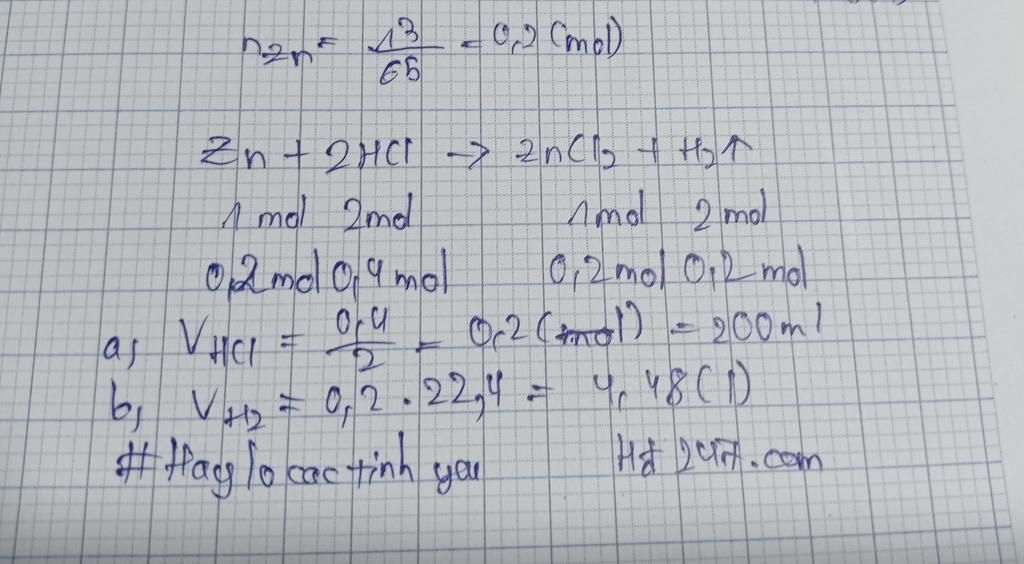 nZn = 13/65 = 0,2 (mol)
Zn + 2HCl → ZnCl2 + H2↑
1 mol 2mol 1mol 2 mol
0,2mol 0,4mol 0,2mol 0,2mol
a, VHCl = 0,4/2 = 0,2 (mol) = 200ml
b, VH2 = 0,2 . 22,4 = 4,48 (l)
# Hoc tinh you Hd 247.com